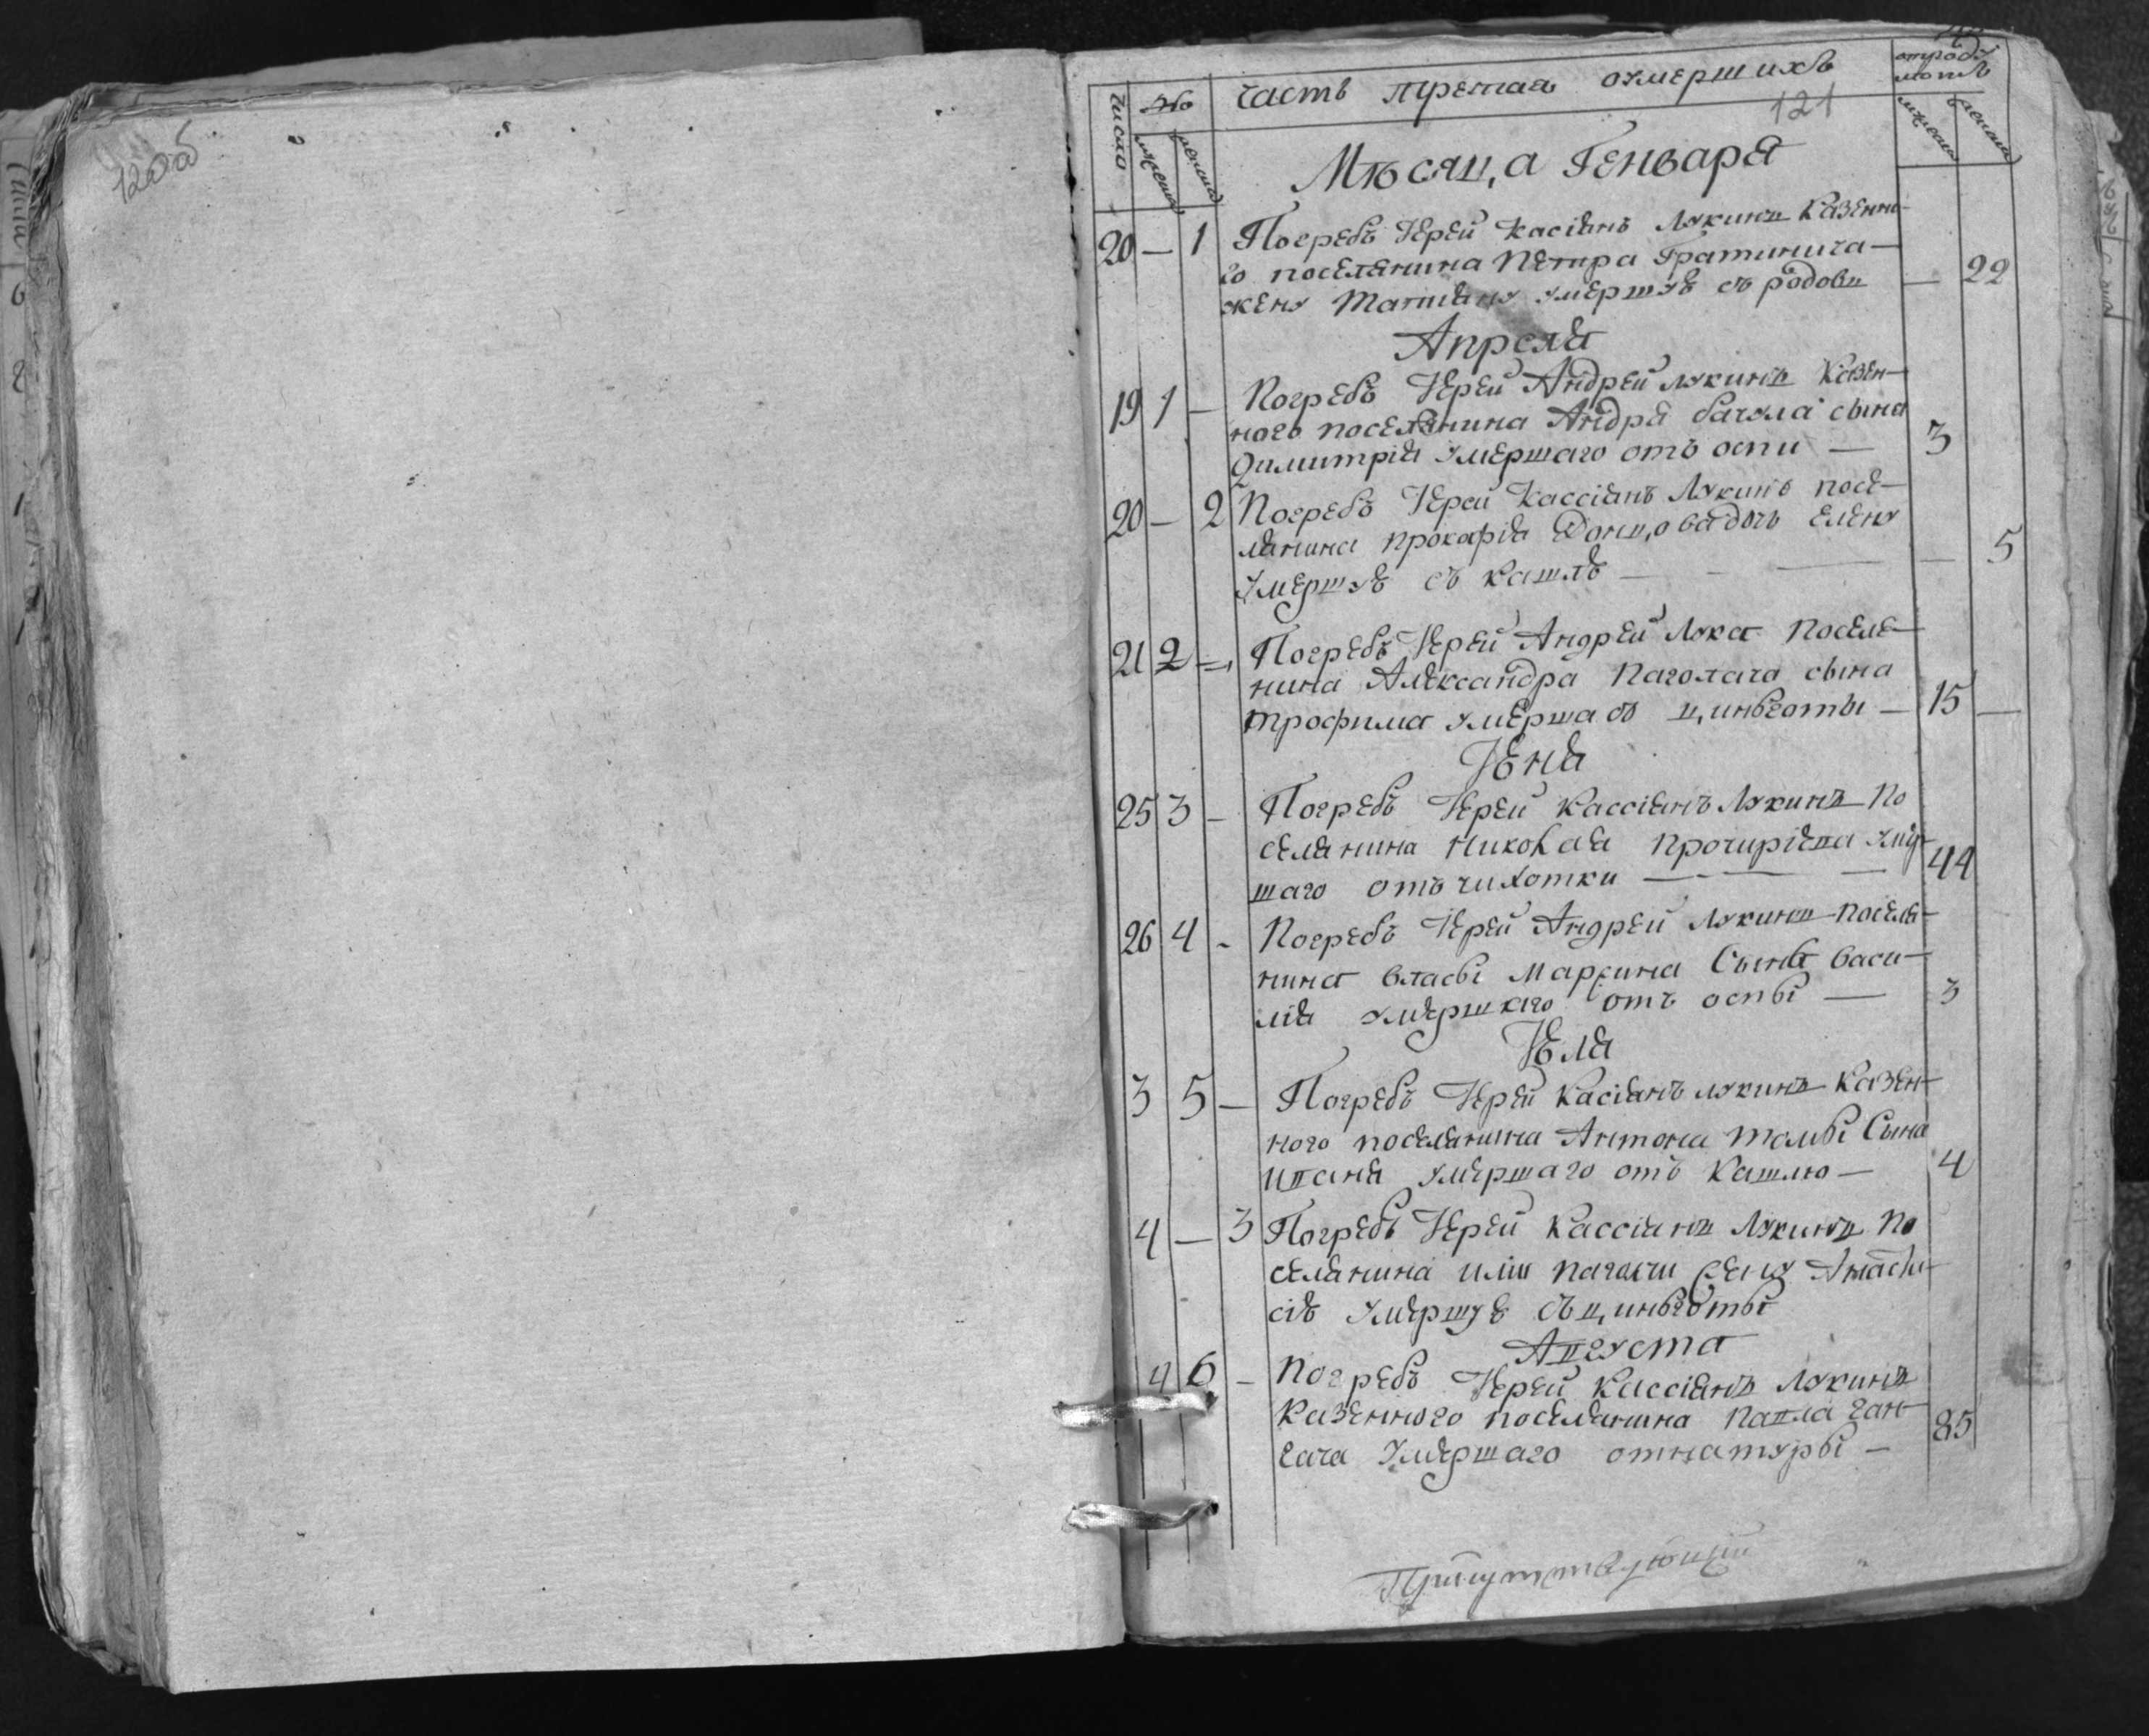 120об
число
№
часть третая оумершихъ
121
Мѣсяца Генваря
20 — 1 Погребъ Іерей Касіянъ Лукинъ Казенно-
го поселянина Петра Гратинича —
жену Татіяну умершую съ родовъ — 22
Апреля
19 1 — Погребъ Іерей Андрей Лукинъ Казен-
ного поселянина Андрея бачула сына
Димитрія умершаго отъ оспи — 3
20 — 2 Погребъ Іерей Кассіянъ Лукинъ посе-
лянина Прокофія дочь Елену
умершую съ кашлю — — 5
21 2 — Погребъ Іерей Андрей Лука поселе-
нина Александра Паголача сына
трофима умерша ѿ цинъготы — 15 —
Іюня
25 3 — Погребъ Іерей Кассіянъ Лукинъ По
селянина Николая умер-
шаго отъ чихотки — 44
26 4 - Погребъ Іерей Андрей Лукинъ поселя-
нина Марѕина Сына васи-
лія умершаго отъ оспы — 3
Іюля
3 5 — Погребъ Іерей Касіянъ Лукинъ Казен-
ного поселянина Антона Сына
Ивана умершаго отъ кашлю — 4
4 — 3 Погребъ Іерей Кассіянъ Лукинъ По
селянина Анаста-
сію умершую съ цинъготы
Августа
4 6 — Погребъ Іерей Кассіянъ Лукинъ
Казенного поселянина Павла ган-
гача умершаго отнатуры — 85
Присутствующій